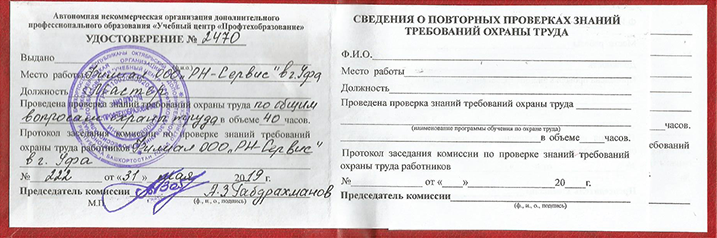 Автономная некоммерческая организация дополнительного
профессионального образования «Учебный центр «Профтехобразование»
УДОСТОВЕРЕНИЕ № 2470
Выдано
Место работы Филиал ООО „РН-Сервис" в г. Уфа
Должность Мастер
Проведена проверка знаний требований охраны труда по общим
вопросам охраны труда в объеме 40 часов.
Протокол заседания комиссии по проверке знаний требований
охраны труда работников Филиал ООО „РН-Сервис"
в г. Уфа
№ 222 от «31» мая 2019 г.
Председатель комиссии А.З. Габдрахманов
М.П. (ф., и., о., подпись)
СВЕДЕНИЯ О ПОВТОРНЫХ ПРОВЕРКАХ ЗНАНИЙ
ТРЕБОВАНИЙ ОХРАНЫ ТРУДА
Ф.И.О.
Место работы
Должность
Проведена проверка знаний требований охраны труда
(наименование программы обучения по охране труда)
в объеме часов.
Протокол заседания комиссии по проверке знаний требований
охраны труда работников
№ от « » 20 г.
Председатель комиссии
(ф., и., о., подпись)
часов.
ебований